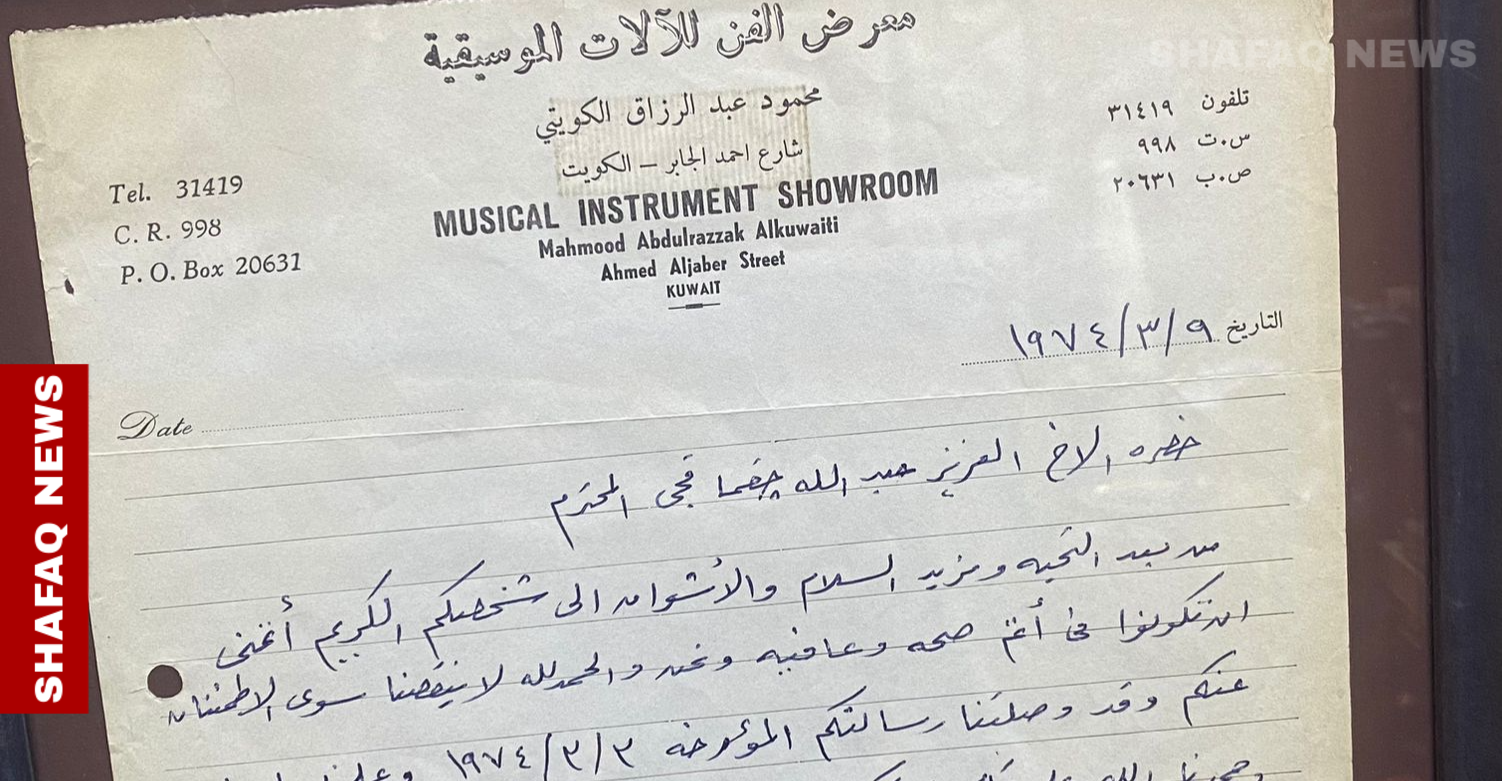 SHAFAQ NEWS
معرض الفن للآلات الموسيقية
محمود عبد الرزاق الكويتي
شارع احمد الجابر – الكويت
MUSICAL INSTRUMENT SHOWROOM
Mahmood Abdulrazzak Alkuwaiti
Ahmed Aljaber Street
KUWAIT
تلفون ٣١٤١٩
س.ت ٩٩٨
ص.ب ٢٠٦٣١
Tel. 31419
C. R. 998
P. O. Box 20631
التاريخ ٩/٣/١٩٧٤
Date
حضره الاخ العزيز عبد الله چقماقچى المحترم
من بعد التحيه ومزيد السلام والأشواق الى شخصكم الكريم أتمنى
ان تكونوا فى أتم صحه وعافيه ونحن والحمدلله لا ينقصنا سوى الاطمئنان
عنكم وقد وصلتنا رسالتكم المؤرخه ٣/٣/١٩٧٤
SHAFAQ NEWS